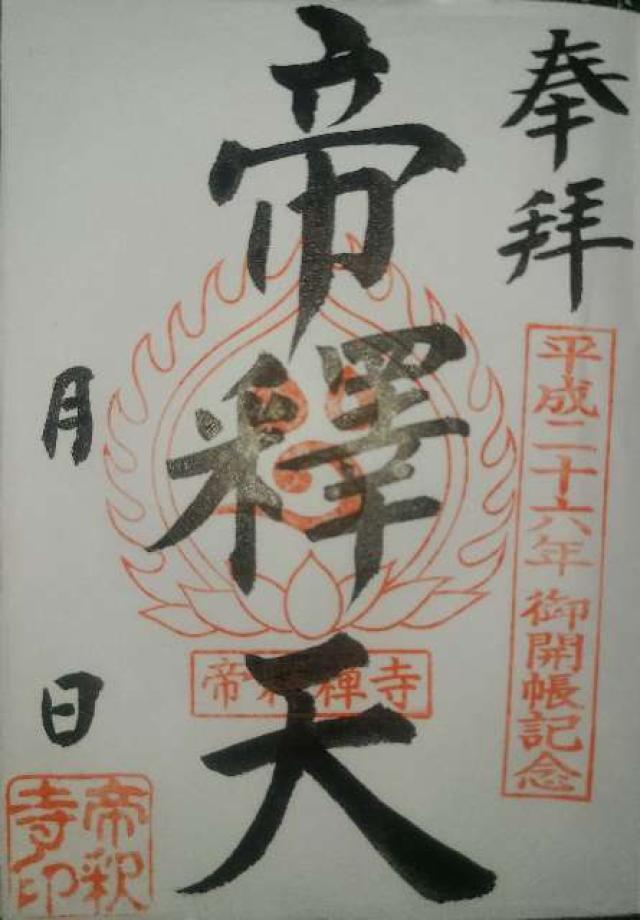 奉拝
平成二十六年 御開帳記念
帝釋天
帝釈禅寺
月
日
帝釈
寺印